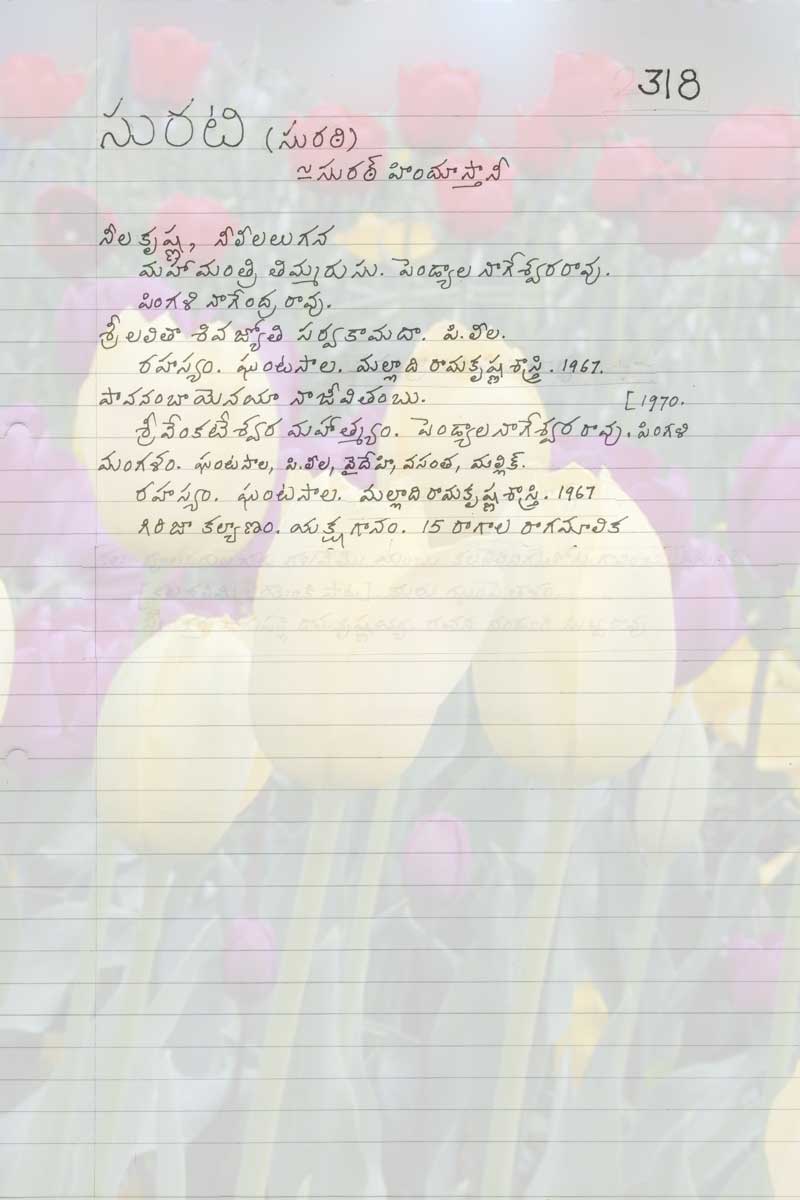 318
సురటి (సురఠి)
≃ సురఠ్ హిందూస్తానీ
నీల కృష్ణ, నీలీలలుగన
మహామంత్రి తిమ్మరుసు. పెండ్యాల నాగేశ్వరరావు.
పింగళి నాగేంద్ర రావు.
శ్రీ లలితా శివజ్యోతి సర్వకామదా. పి. లీల.
రహస్యం. ఘంటసాల. మల్లాది రామకృష్ణ శాస్త్రి. 1967.
పావనంబాయెనయా నా జీవితంబు. [1970.
శ్రీ వేంకటేశ్వర మహాత్మ్యం. పెండ్యాల నాగేశ్వర రావు. పింగళి
మంగళం. ఘంటసాల, పి. లీల, వైదేహి, వసంత, మల్లిక్.
రహస్యం. ఘంటసాల. మల్లాది రామకృష్ణ శాస్త్రి. 1967
గిరిజా కల్యాణం. యక్షగానం. 15 రాగాల రాగమాలిక